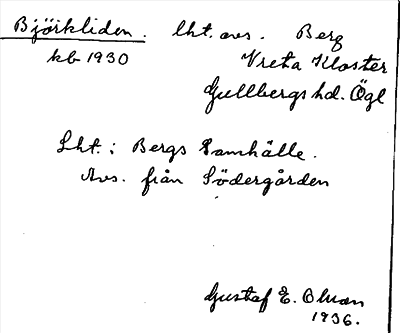 Björkliden. lht. avs. Berg
kb 1930 Vreta Kloster
Gullbergs hd. Ögl
Lht.: Bergs Samhälle.
Avs. från Södergården
Gustaf E. Olson
1936.